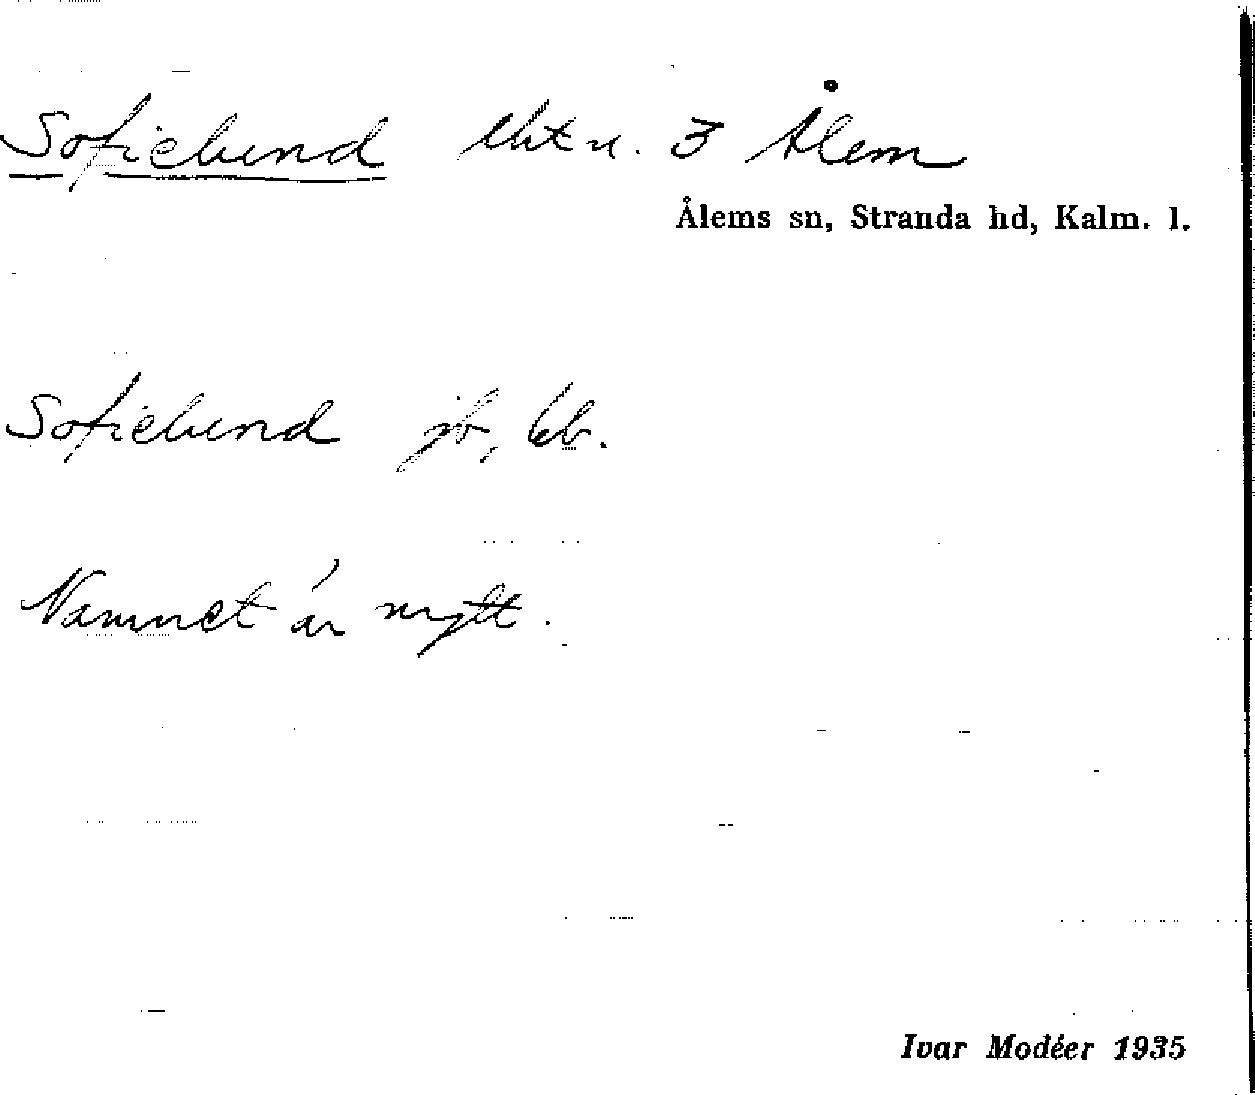 Sofielund lht u. 3 Ålem
Ålems sn, Stranda hd, Kalm. l.
Sofielund jb, kb.
Namnet är nytt.
Ivar Modéer 1935